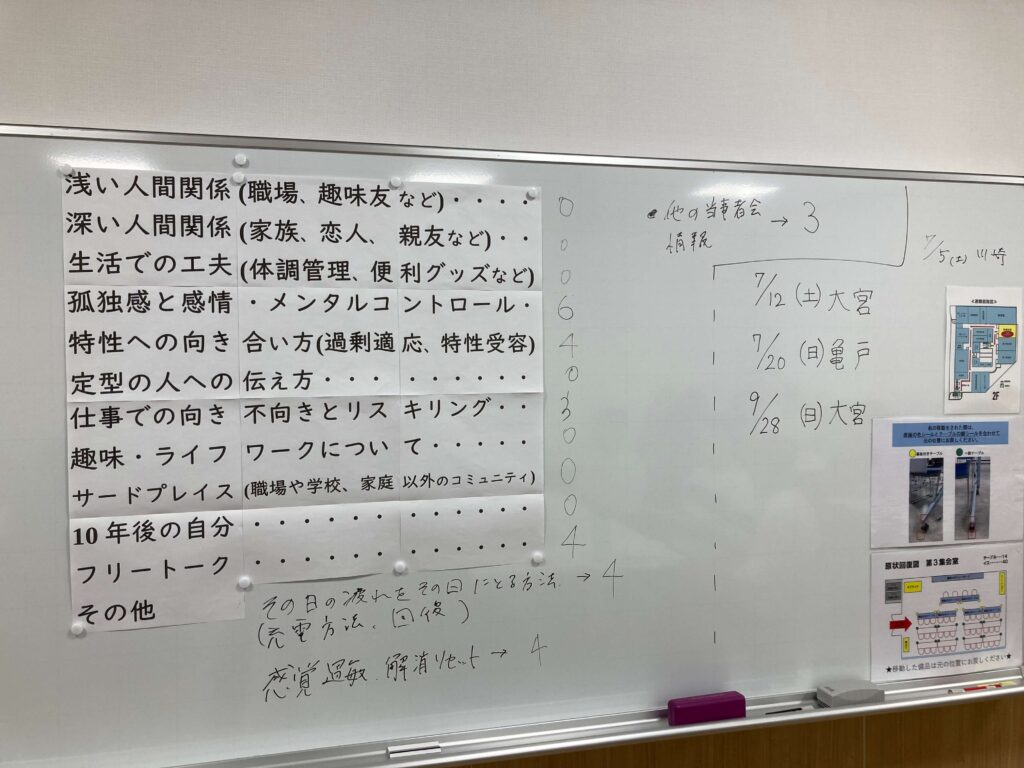 浅い人間関係(職場、趣味友など)・・・・ 0
深い人間関係(家族、恋人、親友など)・・ 0
生活での工夫(体調管理、便利グッズなど) 0
孤独感と感情・メンタルコントロール・ 6
特性への向き合い方(過剰適応、特性受容) 4
定型の人への伝え方・・・・・・・・・・ 0
仕事での向き不向きとリスキリング・・ 3
趣味・ライフワークについて・・ 0
サードプレイス(職場や学校、家庭以外のコミュニティ) 0
10年後の自分・・・・・・・・・・・・ 0
フリートーク・・・・・・・・・・・・ 4
その他
その日の疲れをその日にとる方法 → 4
(充電方法、回復)
感覚過敏.解消リセット → 4
・他の当事者会 → 3
情報
7/5(土) 川崎
7/12 (土) 大宮
7/20 (日) 亀戸
9/28 (日) 大宮
2F
原状回復図 第3集会室
テーブル……14
イス……40
★移動した備品は元の位置にお戻しください★